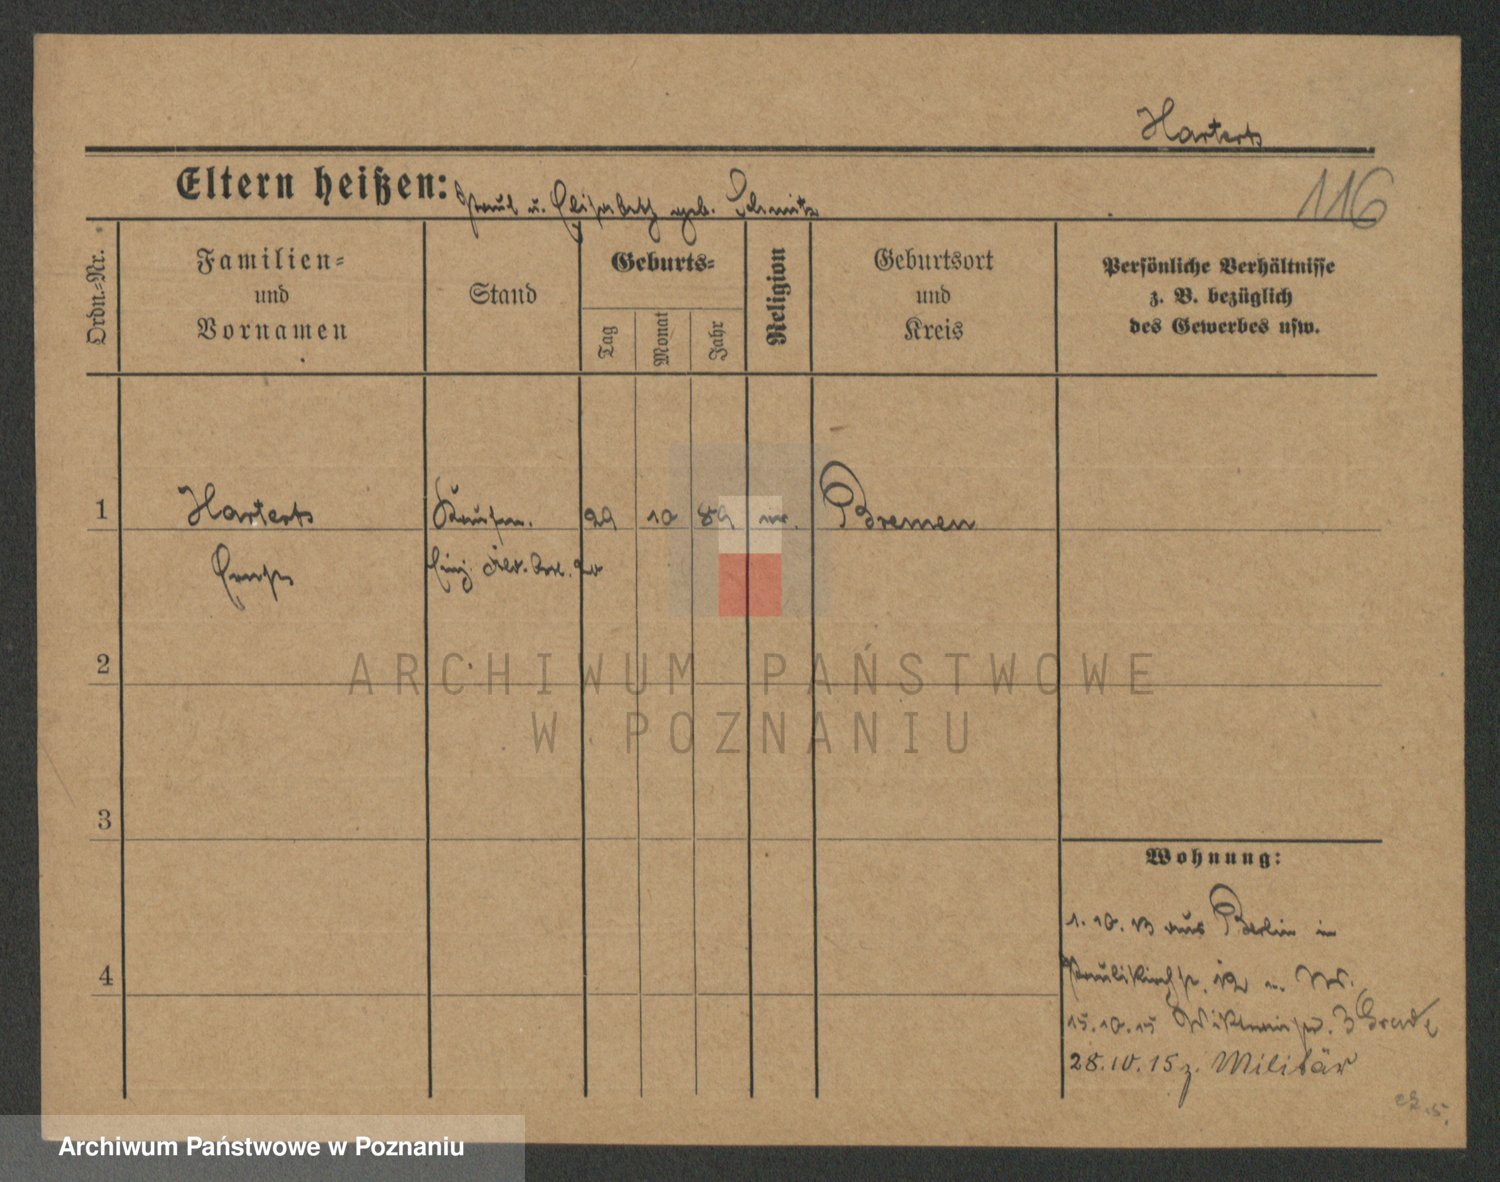 Harterts
Eltern heißen: Paul u. Elisabeth geb. Schmitz
116
Ordn.-Nr.
Familien-
und
Vornamen
Stand
Geburts-
Tag
Monat
Jahr
Religion
Geburtsort
und
Kreis
Persönliche Verhältnisse
z. B. bezüglich
des Gewerbes usw.
1
Harterts
Kaufm.
29
10
89
Bremen
Ernst
Einj.
2
ARCHIWUM PAŃSTWOWE
W POZNANIU
3
Wohnung:
1. 10. 13 aus Berlin in
Paulikirchstr.
4
15. 10. 15
28. 10. 15 z. Militär
Archiwum Państwowe w Poznaniu